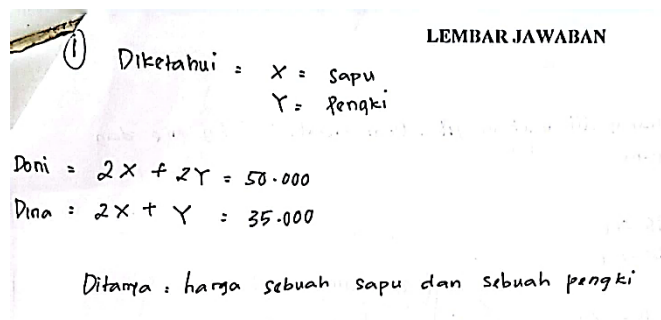 LEMBAR JAWABAN
① Diketahui : X = Sapu
Y = Pengki
Doni = 2X + 2Y = 50.000
Dina : 2X + Y = 35.000
Ditanya : harga sebuah sapu dan sebuah pengki